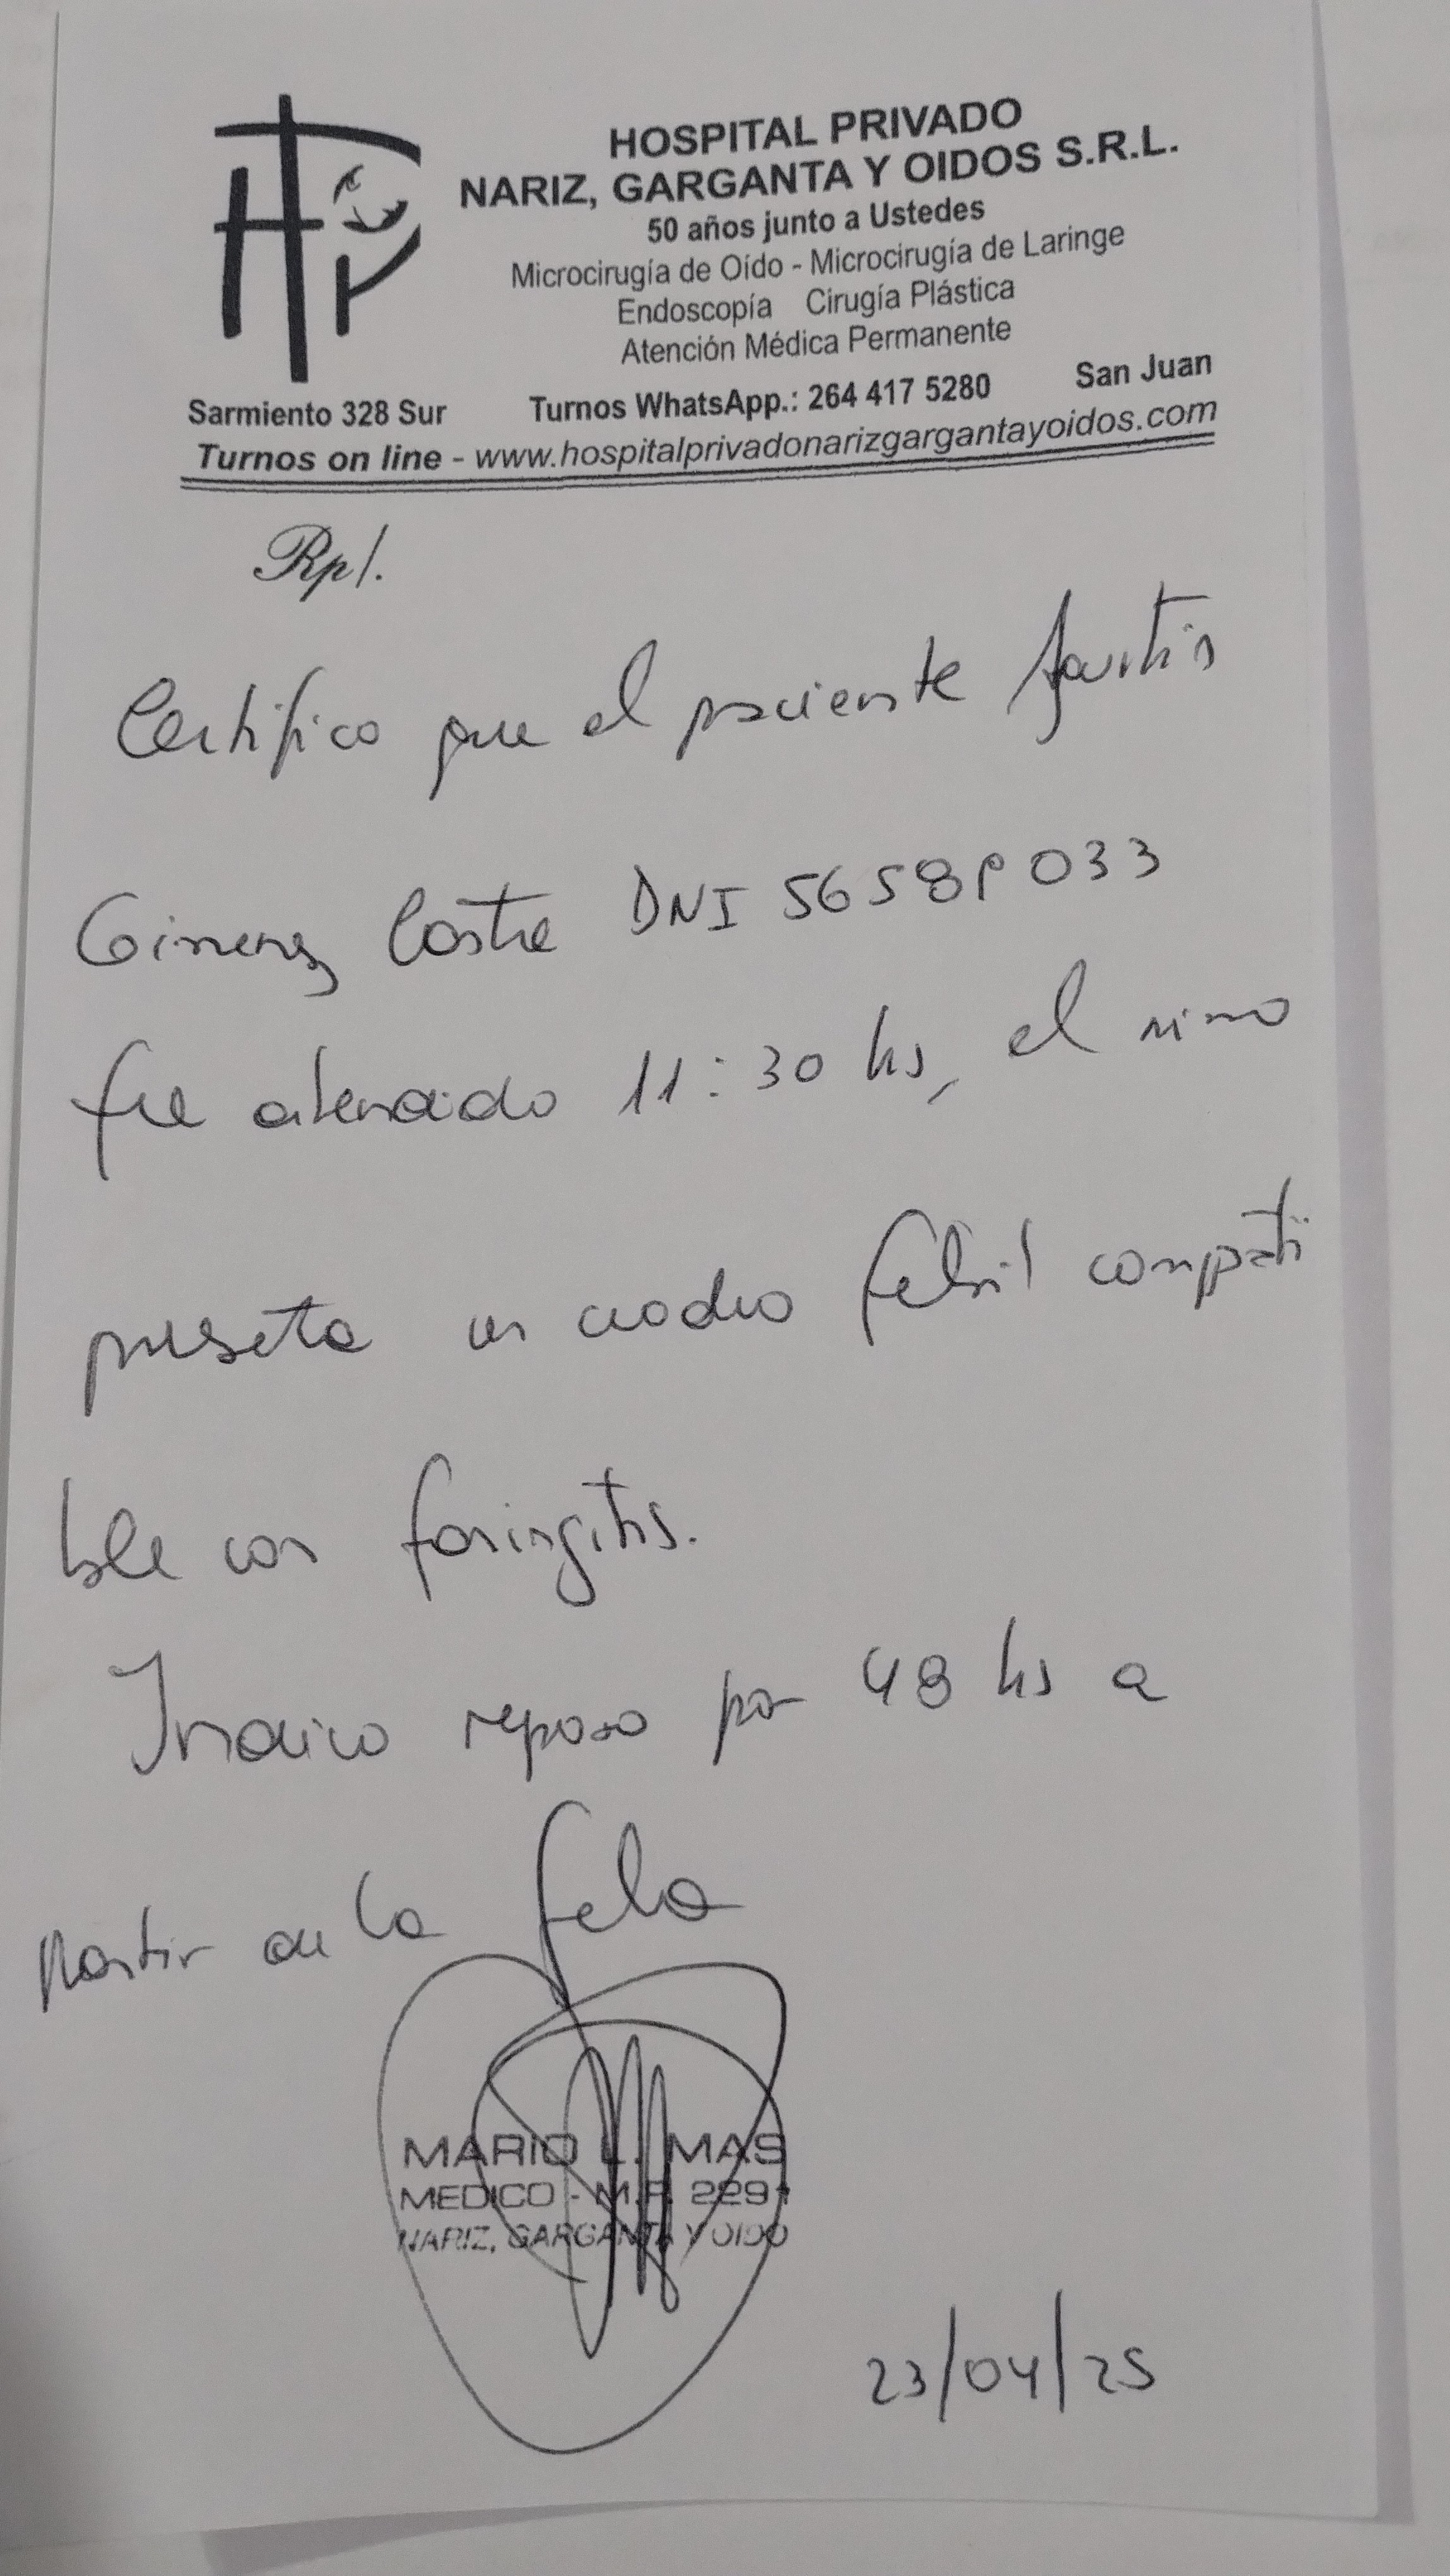 HOSPITAL PRIVADO
NARIZ, GARGANTA Y OIDOS S.R.L.
50 años junto a Ustedes
Microcirugía de Oído - Microcirugía de Laringe
Endoscopía Cirugía Plástica
Atención Médica Permanente
Sarmiento 328 Sur Turnos WhatsApp.: 264 417 5280 San Juan
Turnos on line - www.hospitalprivadonarizgargantayoidos.com
Rp/.
Certifico que el paciente Agustin
Gimenez Castre DNI 56589033
fue atendido 11:30 hs, el nino
preseta un cuadro febril compati
ble con faringitis.
Indico reposo por 48 hs a
partir de la fecha
MARIO L. MAS
MEDICO - M.P. 229
NARIZ, GARGANTA Y OIDO
23/04/25